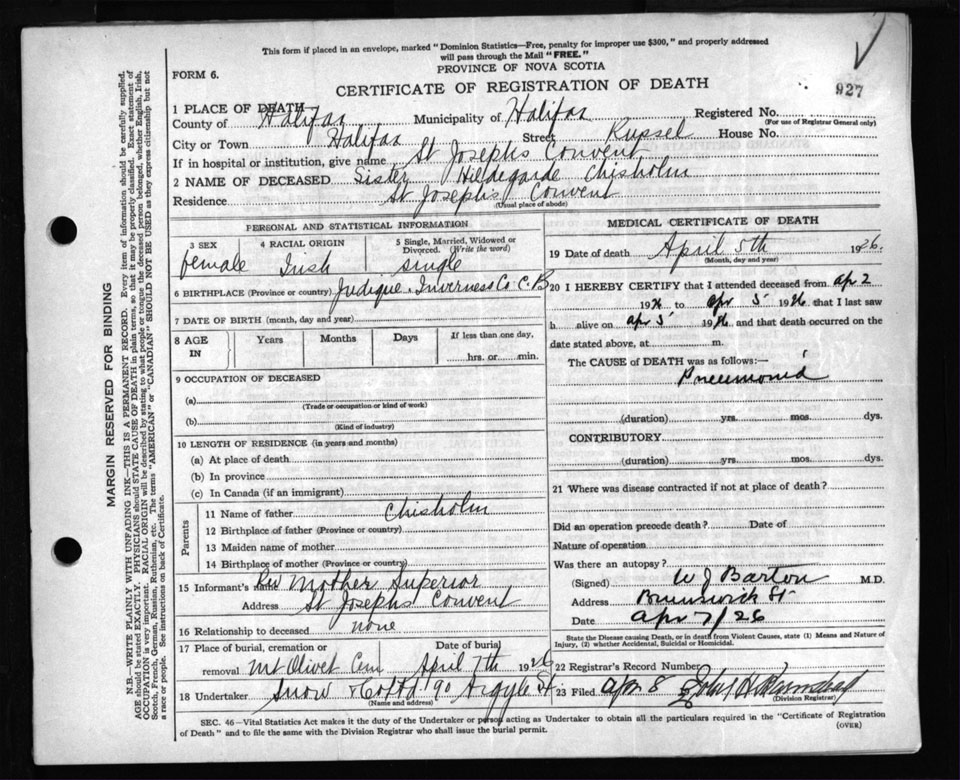 This form if placed in an envelope, marked "Dominion Statistics—Free, penalty for improper use $300," and properly addressed
will pass through the Mail "FREE."
PROVINCE OF NOVA SCOTIA
FORM 6.
CERTIFICATE OF REGISTRATION OF DEATH
927
1 PLACE OF DEATH
County of Halifax Municipality of Halifax Registered No.
(For use of Registrar General only)
City or Town Halifax Street Russel House No.
If in hospital or institution, give name St Josephs Convent
2 NAME OF DECEASED Sister Hildegarde Chisholm
Residence St Joseph's Convent
(Usual place of abode)
PERSONAL AND STATISTICAL INFORMATION
3 SEX 4 RACIAL ORIGIN 5 Single, Married, Widowed or Divorced. (Write the word)
female Irish single
6 BIRTHPLACE (Province or country) Judique. Inverness Co C.B
7 DATE OF BIRTH (month, day and year)
8 AGE IN Years Months Days If less than one day,
hrs. or min.
9 OCCUPATION OF DECEASED
(a)
(Trade or occupation or kind of work)
(b)
(Kind of industry)
10 LENGTH OF RESIDENCE (in years and months)
(a) At place of death
(b) In province
(c) In Canada (if an immigrant)
Parents
11 Name of father Chisholm
12 Birthplace of father (Province or country)
13 Maiden name of mother
14 Birthplace of mother (Province or country)
15 Informant's Name Rev Mother Superior
Address St Josephs Convent
16 Relationship to deceased none
17 Place of burial, cremation or Date of burial
removal Mt Olivet Cem April 7th 1926
18 Undertaker Snow & Co Ltd 90 Argyle St.
(Name and address)
MEDICAL CERTIFICATE OF DEATH
19 Date of death April 5th 1926.
(Month, day and year)
20 I HEREBY CERTIFY that I attended deceased from Apr 2
1926 to Apr 5 1926 that I last saw
h alive on Apr 5 1926 and that death occurred on the
date stated above, at m.
The CAUSE of DEATH was as follows:—
Pneumonia
(duration) yrs. mos. dys.
CONTRIBUTORY
(duration) yrs. mos. dys.
21 Where was disease contracted if not at place of death?
Did an operation precede death? Date of
Nature of operation
Was there an autopsy?
(Signed) W J Barton M.D.
Address Brunswick St
Date Apr 7/26
State the Disease causing Death, or in death from Violent Causes, state (1) Means and Nature of
Injury, (2) whether Accidental, Suicidal or Homicidal.
22 Registrar's Record Number
23 Filed Apr 8 John
(Division Registrar)
SEC. 46—Vital Statistics Act makes it the duty of the Undertaker or person acting as Undertaker to obtain all the particulars required in the "Certificate of Registration
of Death" and to file the same with the Division Registrar who shall issue the burial permit.
(OVER)
MARGIN RESERVED FOR BINDING
N.B.—WRITE PLAINLY WITH UNFADING INK—THIS IS A PERMANENT RECORD. Every item of information should be carefully supplied.
AGE should be stated EXACTLY. PHYSICIANS should STATE CAUSE OF DEATH in plain terms, so that it may be properly classified. Exact statement of
OCCUPATION is very important. RACIAL ORIGIN will be described by stating to what people or tongue the deceased person belonged, whether English, Irish,
Scotch, French, German, Russian, Ruthenian, etc. The terms "AMERICAN" or "CANADIAN" SHOULD NOT BE USED as they express citizenship but not
a race or people. See instructions on back of Certificate.